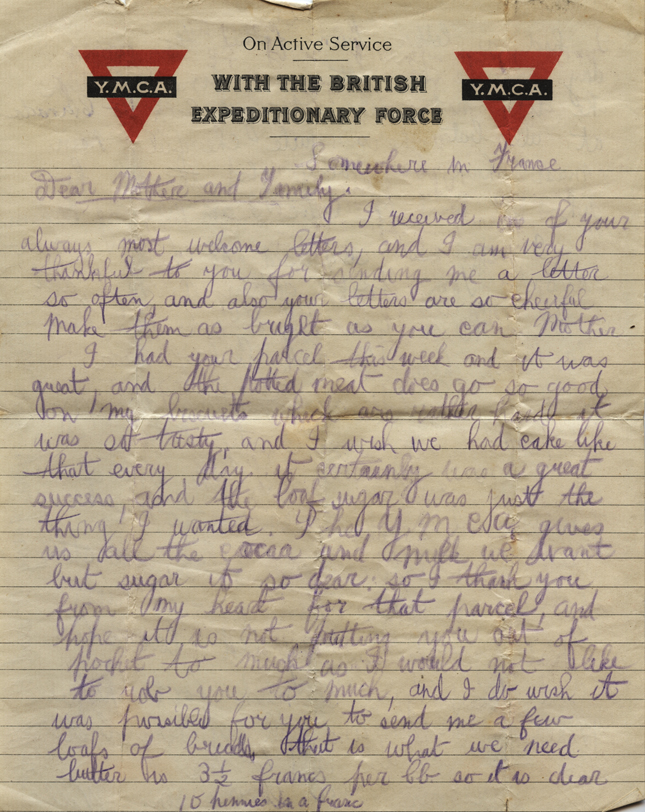 On Active Service
Y.M.C.A.
WITH THE BRITISH
EXPEDITIONARY FORCE
Y.M.C.A.
Somewhere in France
Dear Mother and Family.
I received of your
always most welcome letters, and I am very
thankful to you for sending me a letter
so often, and also your letters are so cheerful
make them as bright as you can Mother.
I had your parcel this week and it was
great, and the potted meat does go so good
on my biscuits which are rather hard it
was so tasty, and I wish we had cake like
that every day. it certainly was a great
success, and the loaf sugar was just the
thing I wanted. The Y M C A gives
us all the cocoa and milk we want
but sugar is so dear. so I thank you
from my heart for that parcel, and
hope it is not putting you out of
pocket to much as I would not like
to rob you to much, and I do wish it
was possible for you to send me a few
loafs of bread, that is what we need.
butter is 3½ francs per lb so it is dear
10 pennies in a franc